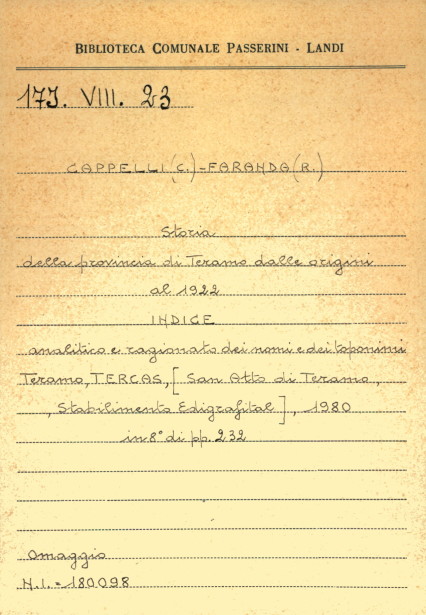 BIBLIOTECA COMUNALE PASSERINI - LANDI
17J. VIII. 23
CAPPELLI (C.) - FARANDA (R.)
Storia
della provincia di Teramo dalle origini
al 1922
INDICE
analitico e ragionato dei nomi e dei toponimi
Teramo, TERCAS, [San Atto di Teramo,
, Stabilimento Edigrafital], 1980
in 8° di pp. 232
Omaggio
N.I. = 180098